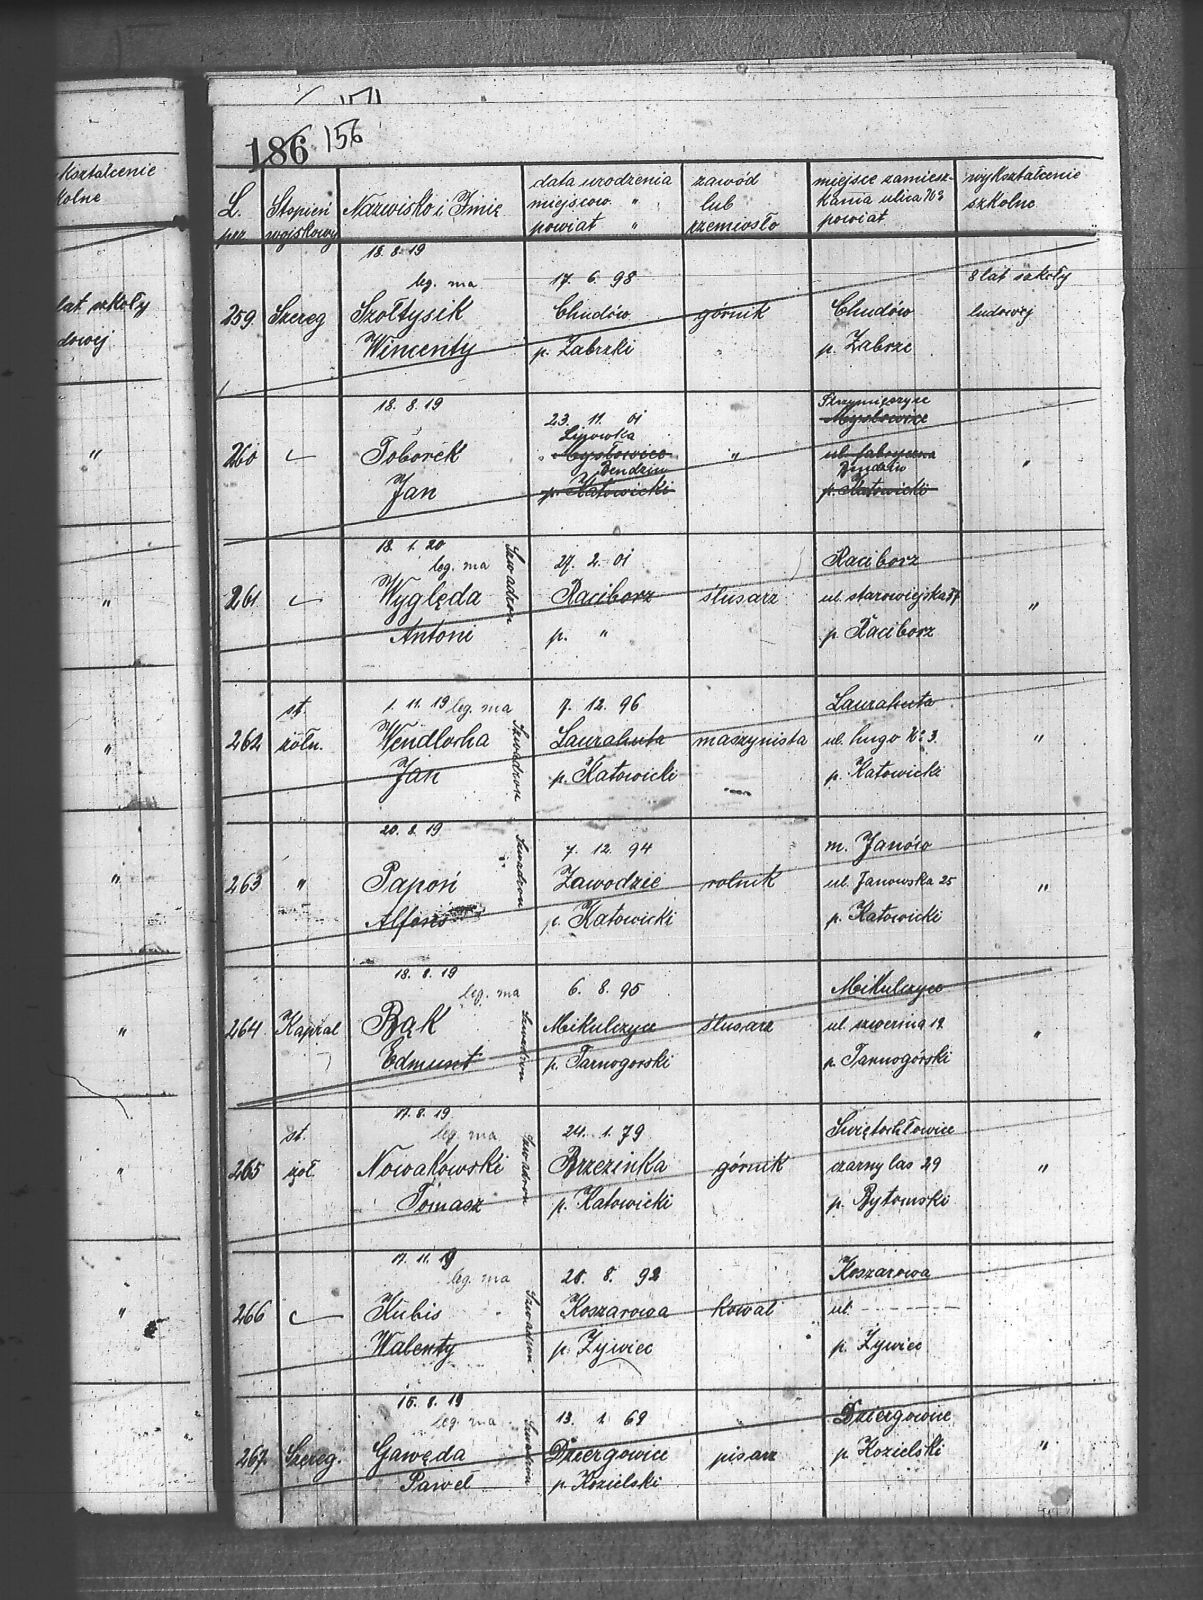 kształcenie
kolne
lat szkoły
dowej
"
"
"
"
"
"
"
186 156
L. prz.
Stopień wojskowy
Nazwisko i Imię
data urodzenia
miejscow. "
powiat "
zawód
lub
rzemiosło
miejsce zamiesz-
kania ulica №
powiat
wykształcenie
szkolne
18. 8. 19
leg. ma
17. 6. 98
8 lat szkoły
259 Szereg Szołtysik Chudów górnik Chudów ludowej
Wincenty p. Zabrzki p. Zabrze
18. 8. 19
23. 11. 01
Mysłowice
260 Toborek Mysłowice " ul. fabryczna "
Bendzin
Jan p. Katowicki p. Katowicki
18. 1. 20
leg. ma
27. 2. 01 Raciborz
261 Wyględa Szwadron Raciborz ślusarz ul. starowiejska "
Antoni p. " p. Raciborz
st. 1. 11. 19 leg. ma 7. 12. 96 Laurahuta
262 żołn. Wendlocha Szwadron Laurahuta maszynista ul. hugo № 3. "
Jan p. Katowicki p. Katowicki
20. 8. 19
7. 12. 94 m. Janów
263 " Papoń Szwadron Zawodzie rolnik ul. Janowska 25 "
Alfons p. Katowicki p. Katowicki
18. 8. 19
leg. ma
6. 8. 95 Mikulczyce
264 Kapral Bąk Szwadron Mikulczyce ślusarz ul szwerina 19 "
Edmunt p. Tarnogorski p. Tarnogórski
17. 8. 19
st. leg. ma 24. 1. 79 Świętochłowice
265 żoł Nowakowski Szwadron Brzezinka górnik czarny las 29 "
Tomasz p. Katowicki p. Bytomski
17. 11. 19
leg. ma 28. 8. 92 Koszarowa
266 Kubis Szwadron Koszarowa kowal ul. "
Walenty p. Żywiec p. Żywiec
15. 8. 19
leg. ma 13. 1. 69 Dziergowice
267 Szereg. Gawęda Szwadron Dziergowice pisarz p. Kozielski "
Paweł p. Kozielski